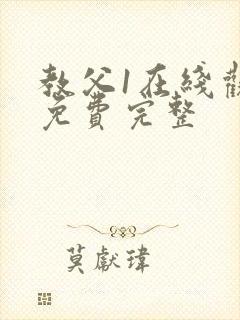 教父1在綫觀
免費完整
莫獻瑋